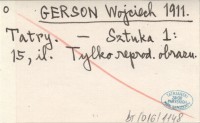 o GERSON Wojciech 1911.
Tatry. — Sztuka 1:
15, il. Tylko reprod. obrazu.
br/016/1148